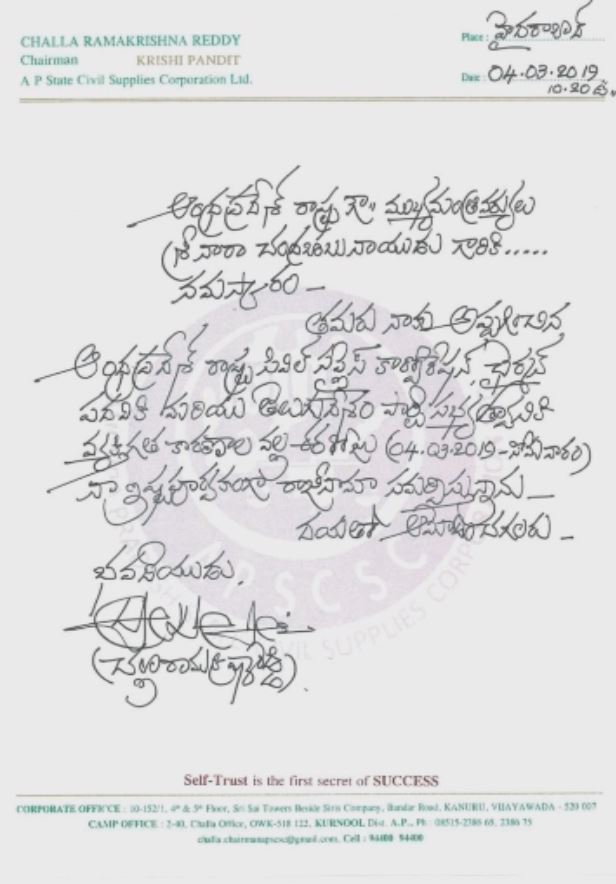 CHALLA RAMAKRISHNA REDDY
Chairman KRISHI PANDIT
A P State Civil Supplies Corporation Ltd.
Place : హైదరాబాద్
Date : 04.03.2019
10.20 ఉ.
ఆంధ్రప్రదేశ్ రాష్ట్ర గౌ॥ ముఖ్యమంత్రివర్యులు
శ్రీ నారా చంద్రబాబునాయుడు గారికి.....
నమస్కారం –
తమరు నాకు అప్పగించిన
ఆంధ్రప్రదేశ్ రాష్ట్ర సివిల్ సప్లైస్ కార్పోరేషన్ ఛైర్మన్
పదవికి మరియు తెలుగుదేశం పార్టీ సభ్యత్వానికి
వ్యక్తిగత కారణాల వల్ల ఈరోజు (04.03.2019 - సోమవారం)
నా ఇష్టపూర్వకంగా రాజీనామా సమర్పిస్తున్నాను –
దయతో ఆమోదించగలరు –
భవదీయుడు,
(చల్లా రామకృష్ణారెడ్డి).
APSCSC
CIVIL SUPPLIES CORPOR
Self-Trust is the first secret of SUCCESS
CORPORATE OFFICE : 10-152/1, 4th & 5th Floor, Sri Sai Towers Beside Siris Company, Bandar Road, KANURU, VIJAYAWADA - 520 007
CAMP OFFICE : 2-40, Challa Office, OWK-518 122, KURNOOL Dist. A.P., Ph : 08515-2386 65, 2386 75
challa.chairmanapscsc@gmail.com, Cell : 94400 94400